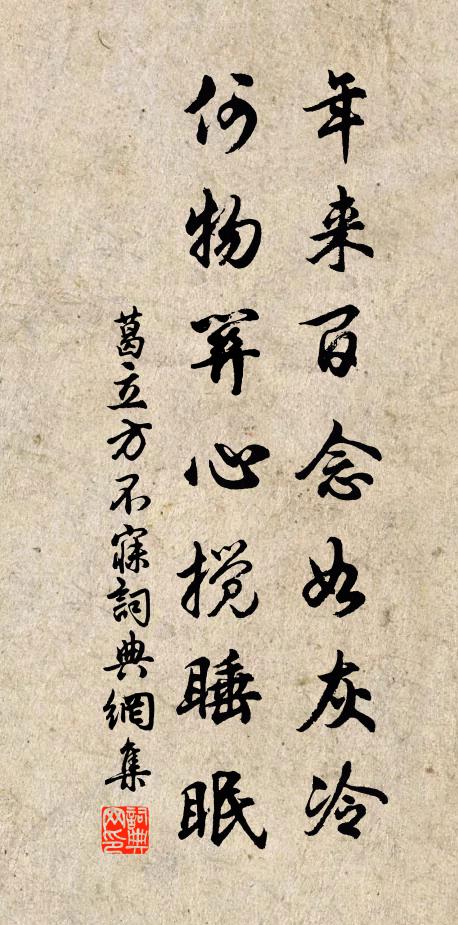 年来百念如灰冷
何物関心搅睡眠
葛立方不寐詞典網集
詞典网印